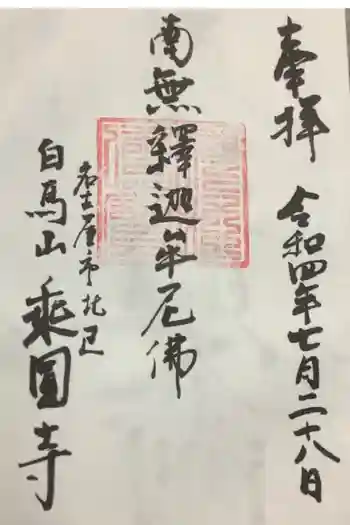 奉拝
令和四年七月二十八日
南無釋迦牟尼佛
名古屋市北区
白馬山
乘圓寺